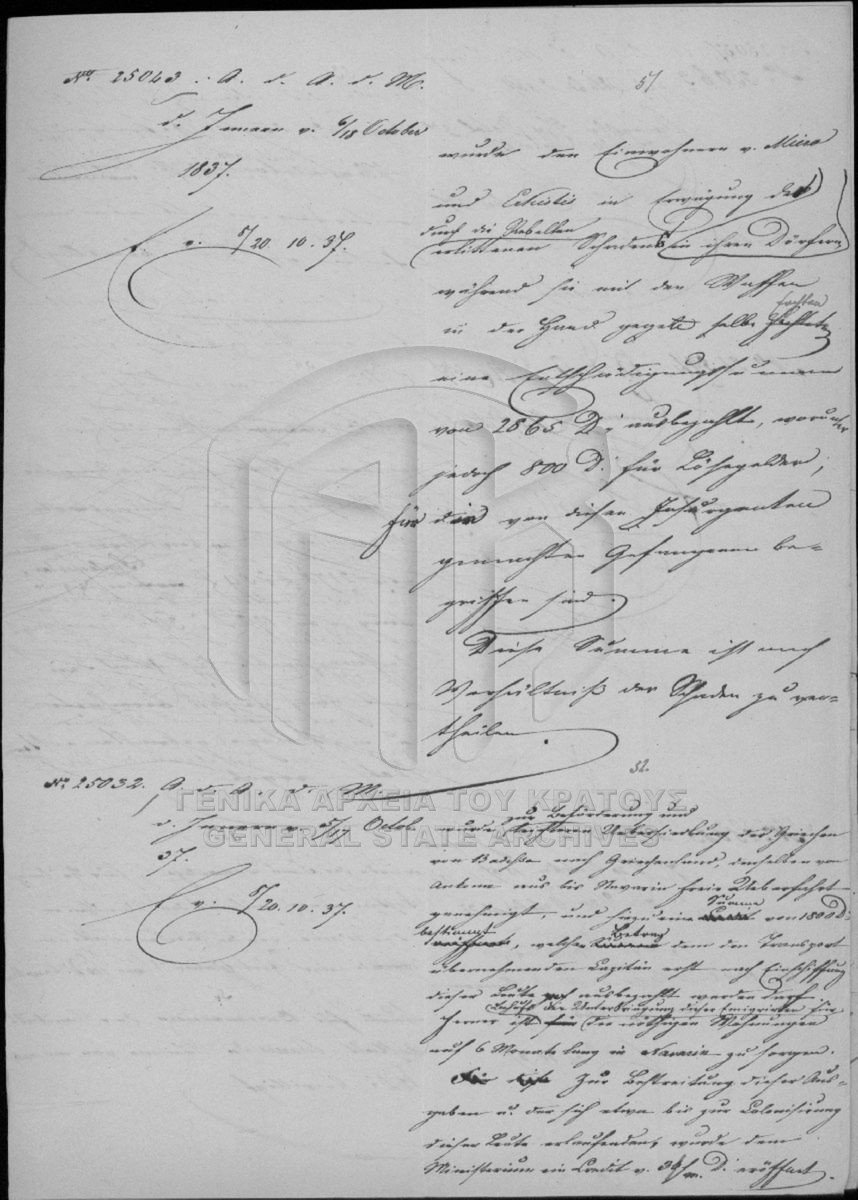 No 25043. A. d. A. d. M.
d. Innern v. 6/18 October
1837.
E. v. 8/20. 10. 37.
51
wurde den Einwohnern v.
und in Erwägung des
durch die Rebellen
erlittenen Schadens in ihren Dörfern
während sie mit den Waffen
fochten
in der Hand gegen selbe
eine Entschädigungssumme
von 2865 D: ausbezahlt, worunter
jedoch 800 D. für Lösegelder,
für die von diesen Insurgenten
gemachten Gefangenen be-
griffen sind.
Diese Summe ist nach
Verhältniß der Schäden zu ver-
theilen.
No 25032. A. d. A. d. M.
d. Innern v. 5/17 Octob.
37.
E. v. 8/20. 10. 37.
52.
zur Beförderung und
wurde Uebersiedlung der Griechen
von nach Griechenland, denselben von
Ankona aus bis Navarin freie Ueberfahrt
Summe
genehmigt, und hiezu eine von 1800 D:
bestimmt Betrag
, welcher dem den Transport
übernehmenden Capitän erst nach Einschiffung
dieser Leute ausbezahlt werden darf.
Behufs der Unterbringung dieser Emigrirten für
Ferner ist die nöthigen Wohnungen
auf 6 Monate lang in Navarin zu sorgen.
Zur Bestreitung dieser Aus-
gaben u. der sich etwa bis zur Colonisirung
dieser Leute erlaufenden, wurde dem
Ministerium ein Credit v. D. eröffnet.
ΓΕΝΙΚΑ ΑΡΧΕΙΑ ΤΟΥ ΚΡΑΤΟΥΣ
GENERAL STATE ARCHIVES